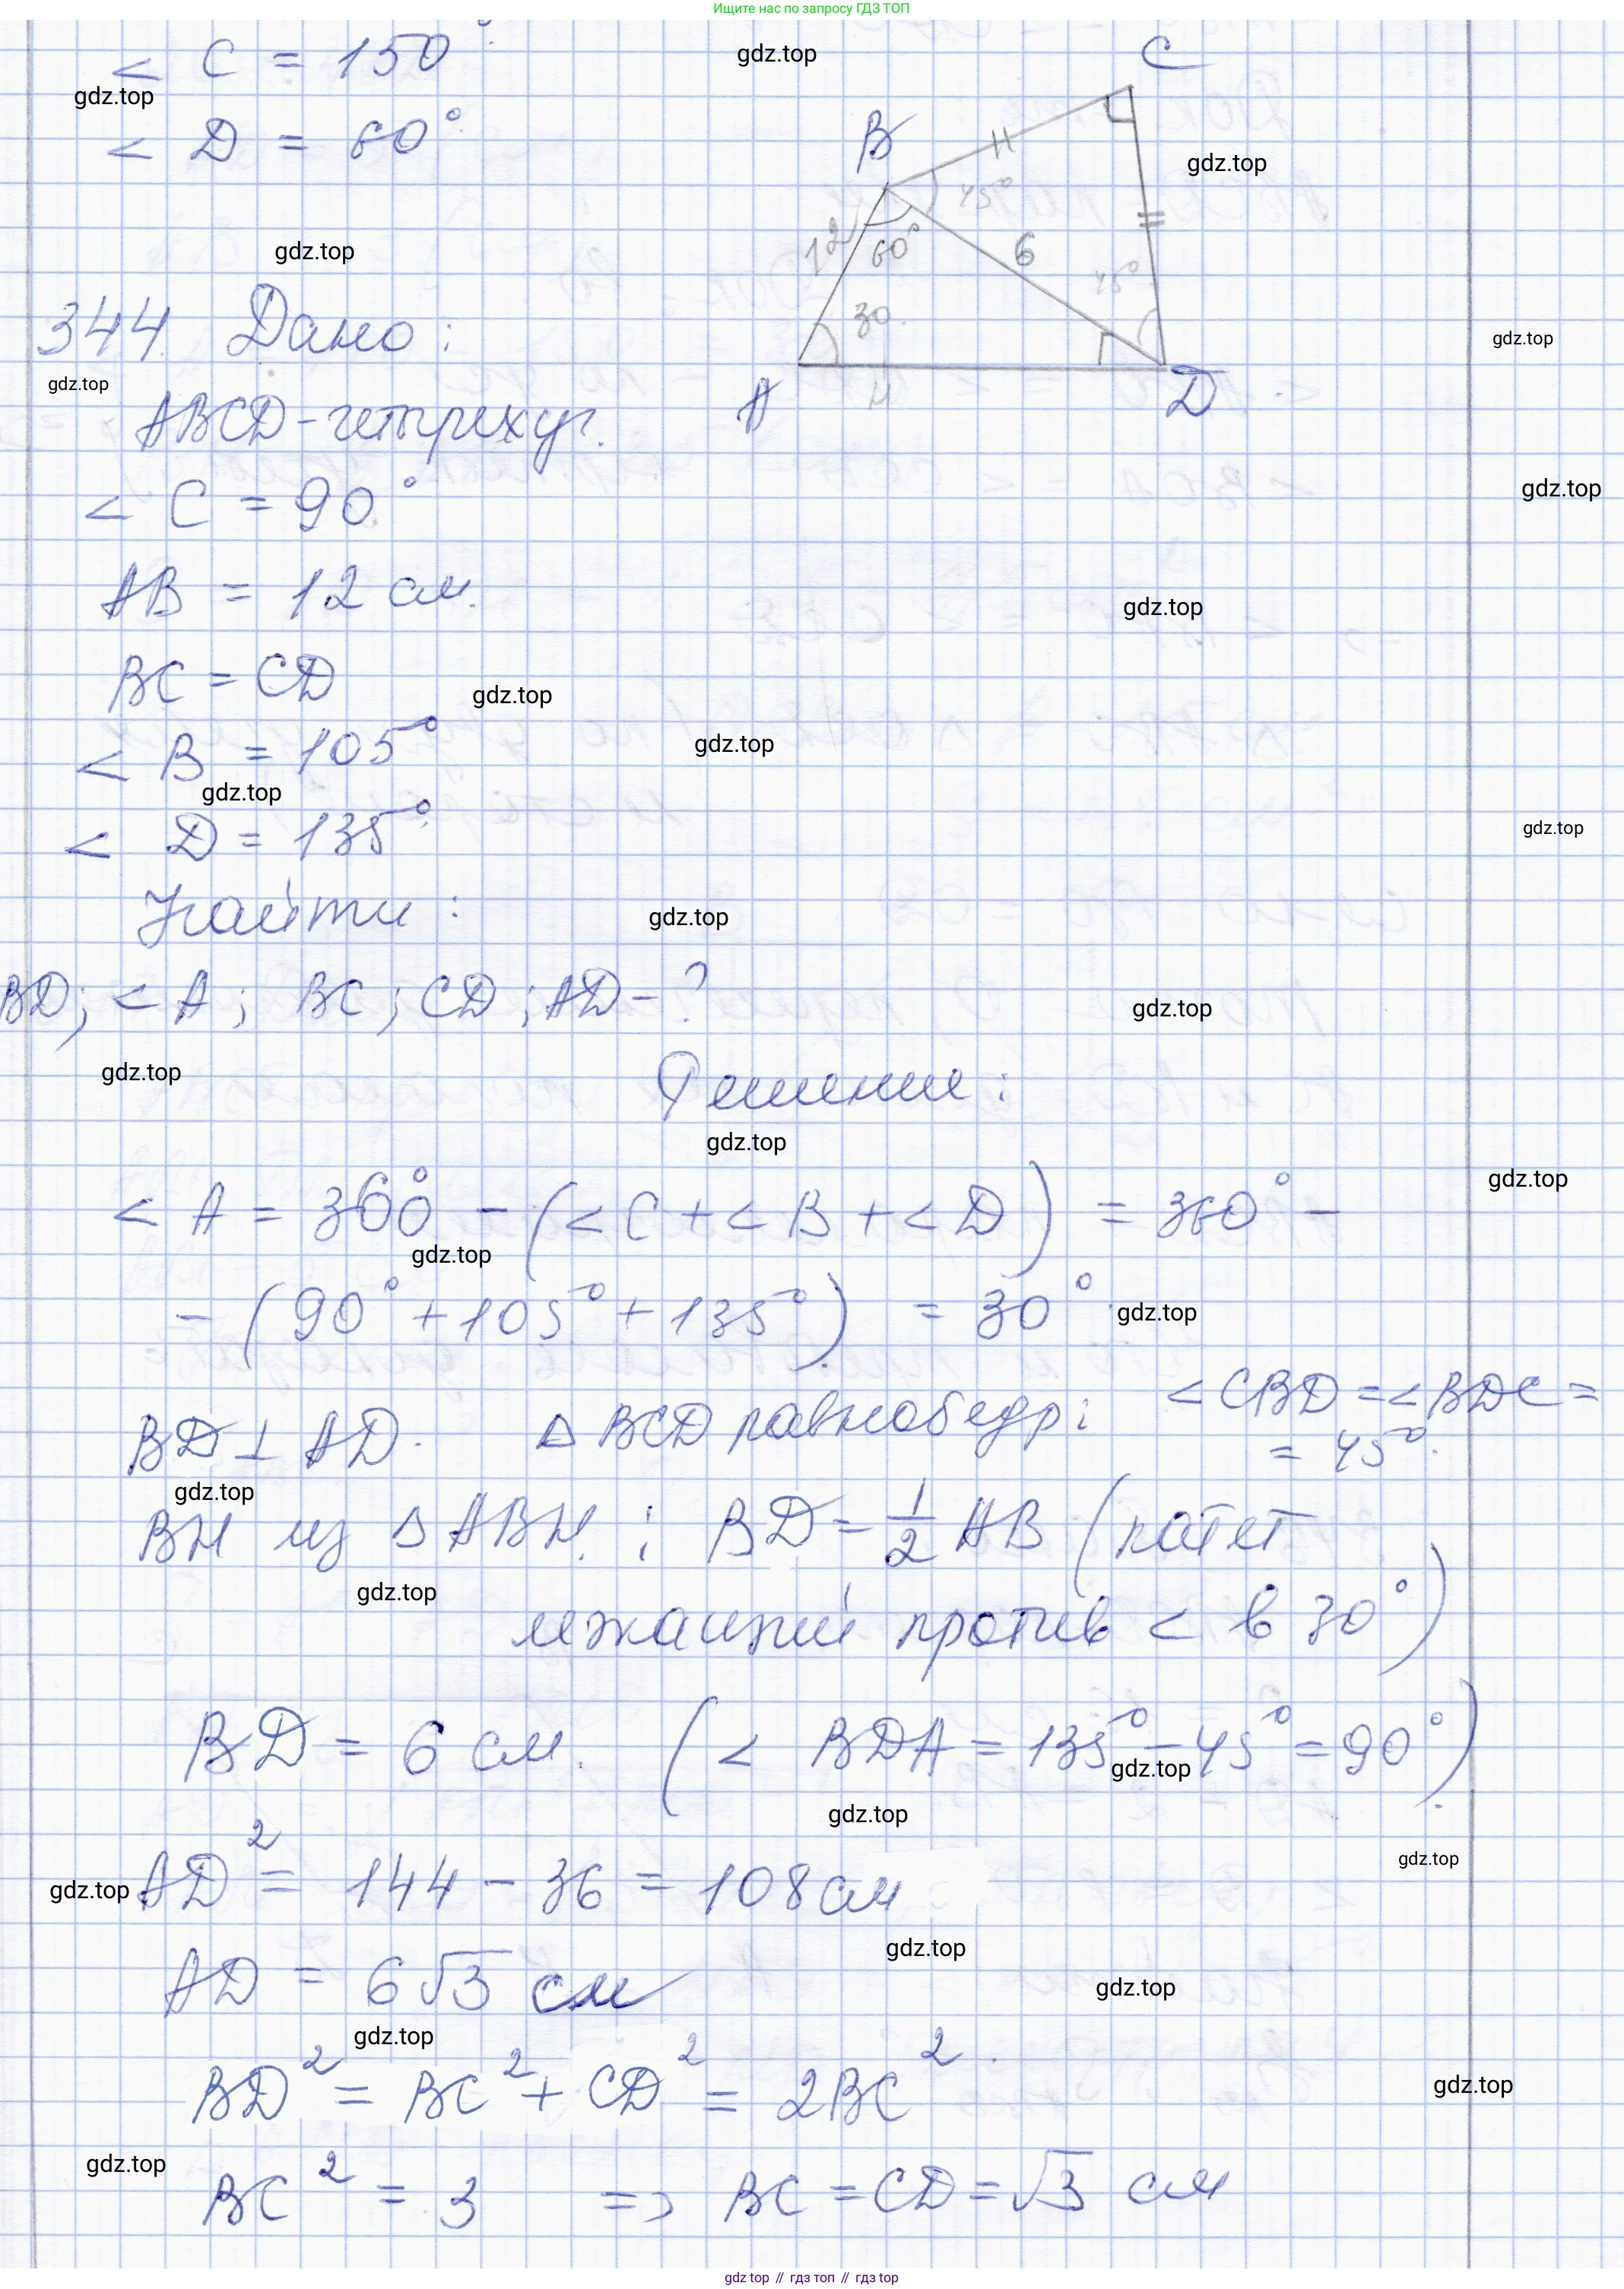 Ищите нас по запросу ГДЗ ТОП
< C = 150°
gdz.top
gdz.top
< D = 60°
gdz.top
gdz.top
C
B
45°
12
60°
6
45°
30
A
H
D
344. Дано:
gdz.top
gdz.top
ABCD - четырехуг.
< C = 90°
gdz.top
AB = 12 см.
gdz.top
BC = CD
gdz.top
< B = 105°
gdz.top
gdz.top
< D = 135°
gdz.top
Найти:
gdz.top
BD; < A; BC; CD; AD - ?
gdz.top
gdz.top
Решение:
gdz.top
< A = 360° - (< C + < B + < D) = 360° -
gdz.top
gdz.top
- (90° + 105° + 135°) = 30°.
gdz.top
BD ⊥ AD. Δ BCD равнобедр: < CBD = < BDC =
= 45°.
gdz.top
BH из Δ ABH. ; BD = 1/2 AB (катет
gdz.top
лежащий против < в 30°)
BD = 6 см. (< BDA = 135° - 45° = 90°).
gdz.top
gdz.top
gdz.top
AD² = 144 - 36 = 108 см
gdz.top
gdz.top
AD = 6√3 см
gdz.top
gdz.top
BD² = BC² + CD² = 2BC².
gdz.top
gdz.top
BC² = 3 => BC = CD = √3 см
gdz top // гдз топ // гдз top